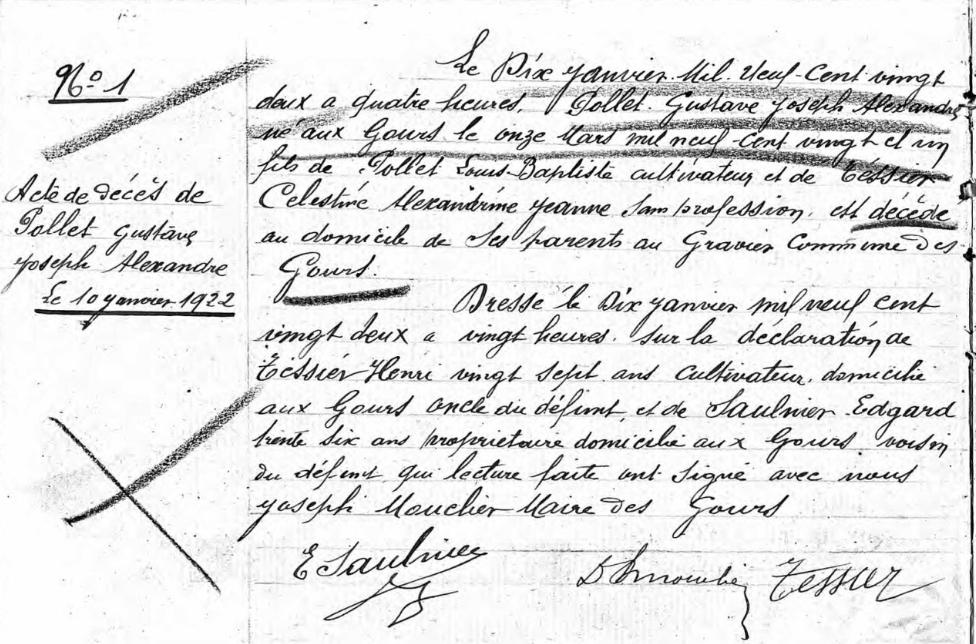 No 1
Acte de décès de
Pollet Gustave
Joseph Alexandre
Le 10 janvier 1922
Le Dix janvier Mil Neuf Cent vingt
deux a quatre heures, Pollet Gustave Joseph Alexandre
né aux Gours le onze Mars mil neuf cent vingt et un
fils de Pollet Louis Baptiste cultivateur et de Téssier
Celestine Alexandrine Jeanne sans profession, est décédé
au domicile de ses parents au Gravier Commune des
Gours.
Dressé le Dix janvier mil neuf cent
vingt deux a vingt heures. sur la déclaration de
Téssier Henri vingt sept ans cultivateur, domicilié
aux Gours oncle du défunt et de Saulnier Edgard
trente six ans propriétaire domicilié aux Gours voisin
du défunt qui lecture faite ont signé avec nous
Joseph Maire des Gours
E Saulnier
Tessier